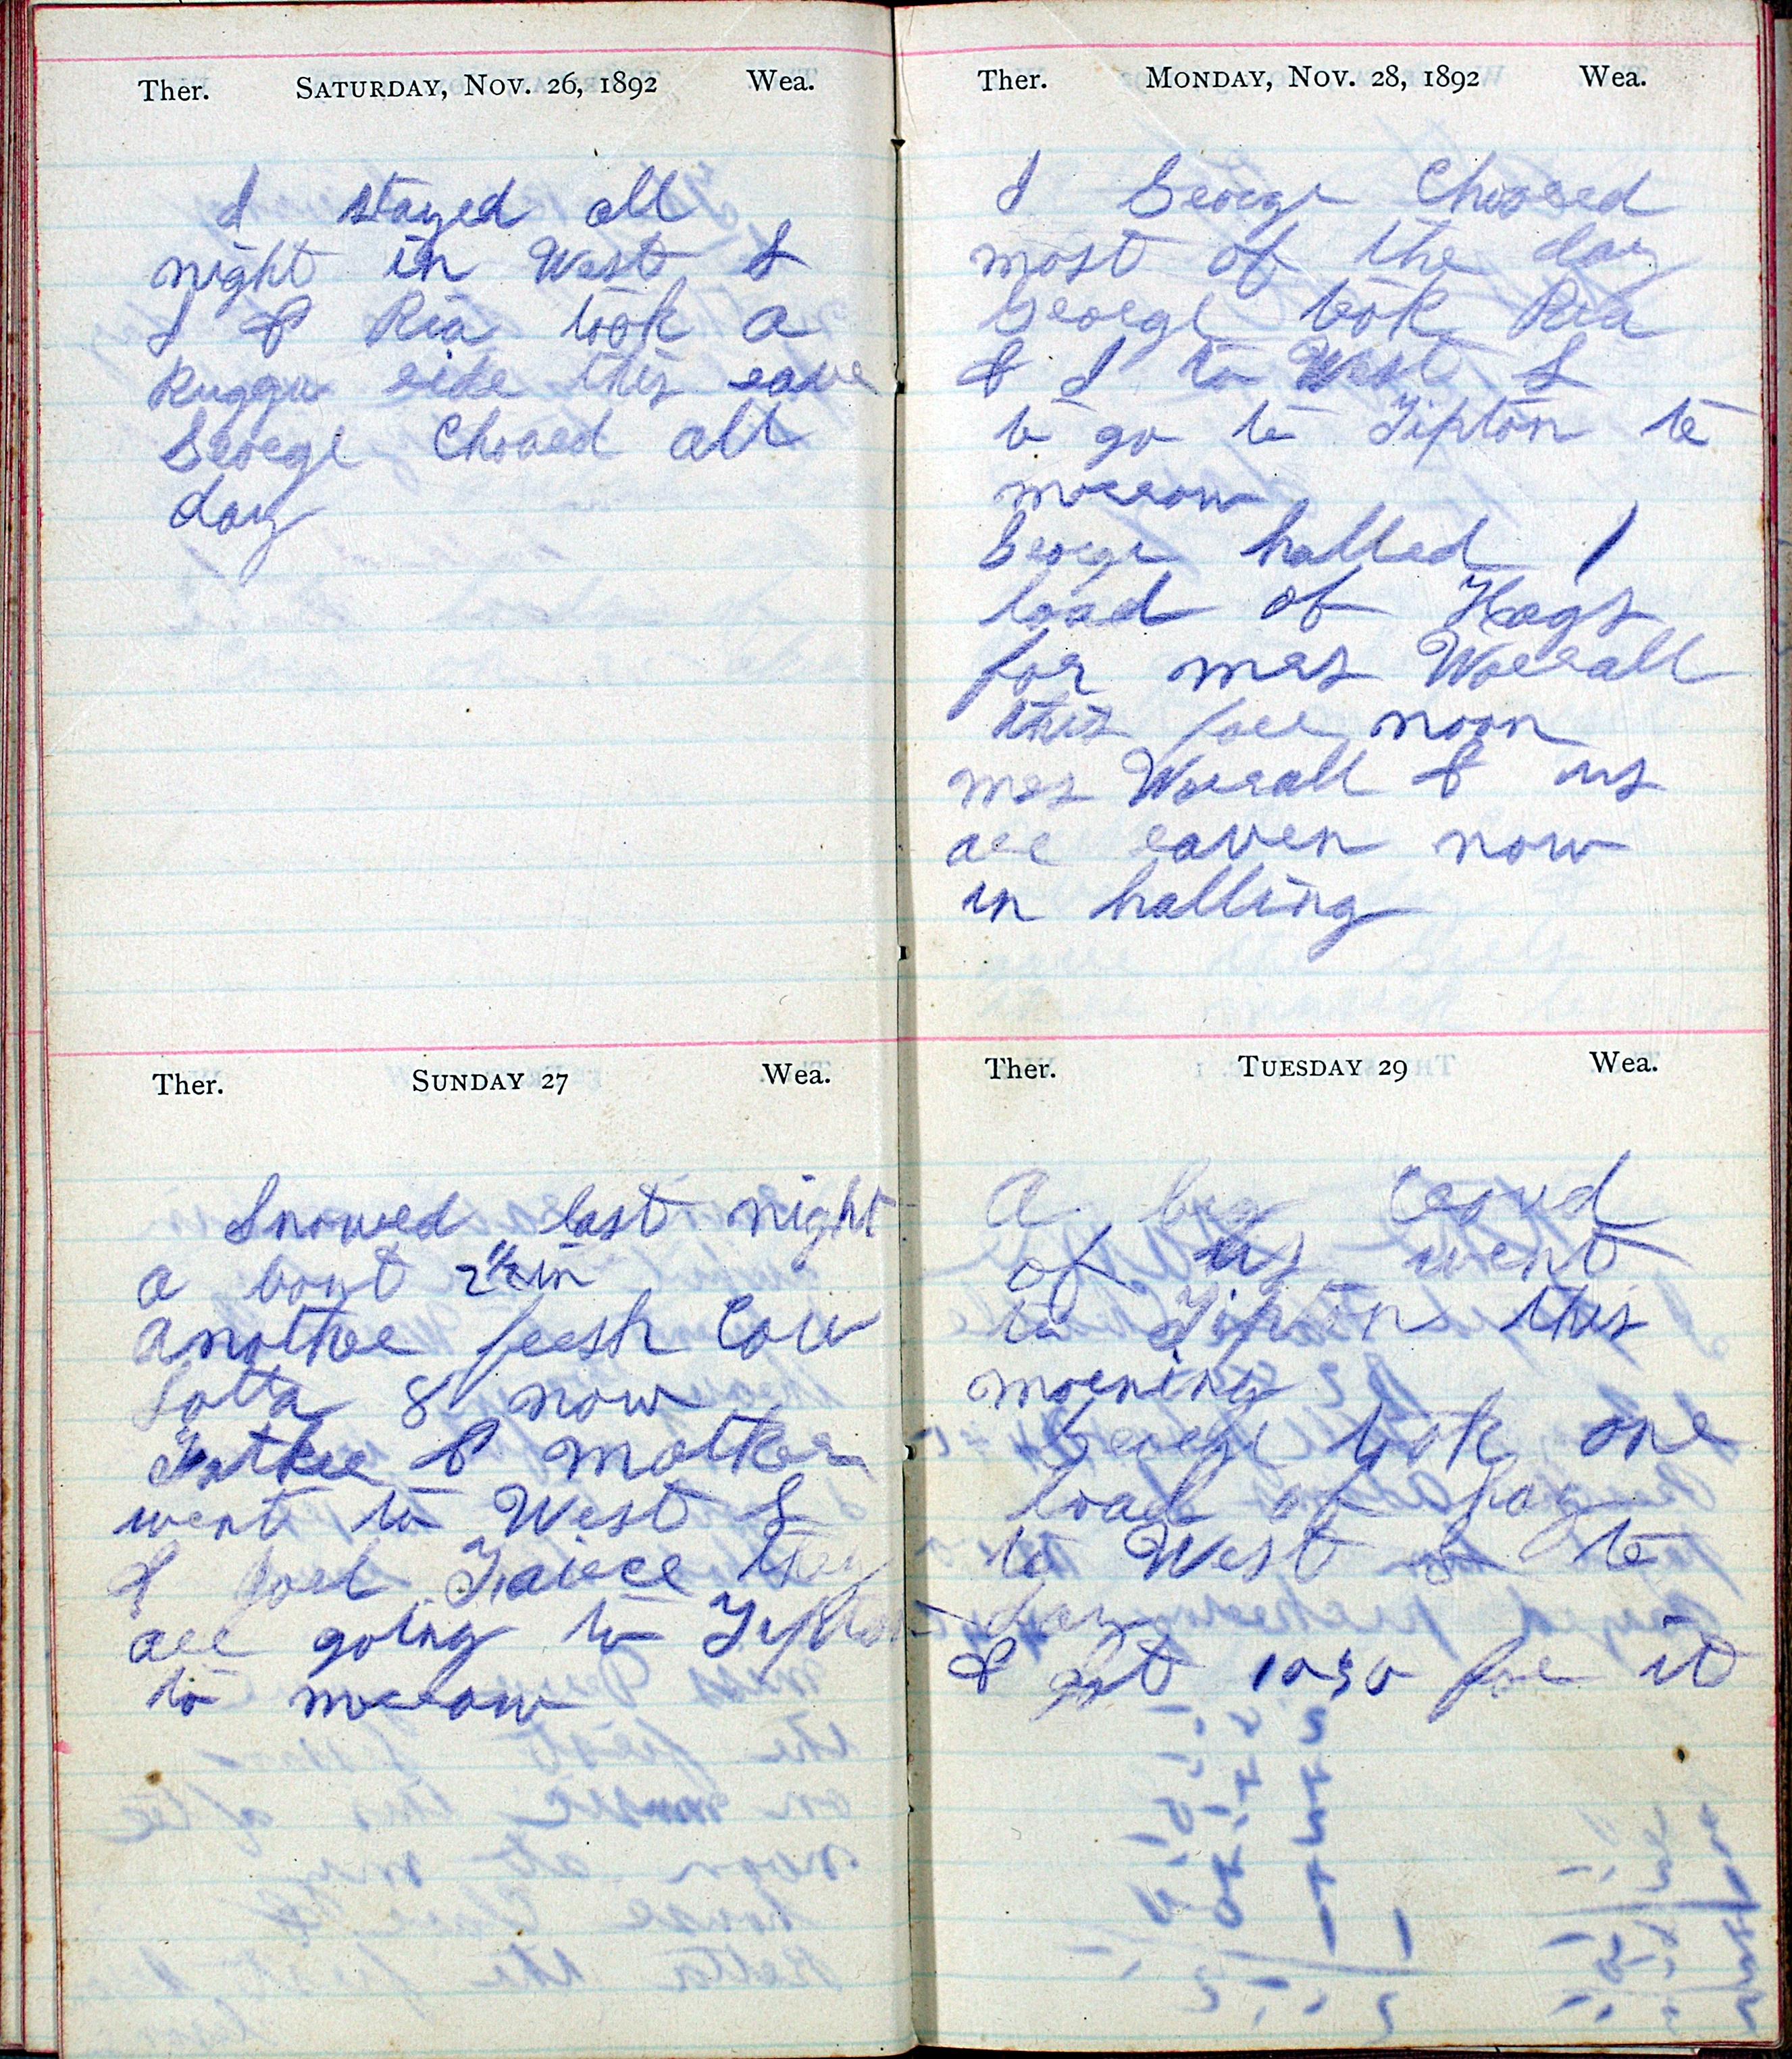 Ther. SATURDAY, NOV. 26, 1892 Wea.
I stayed all
night in West L
I & Ria took a
Buggu ride this eave
George Choaed all
day
Ther. SUNDAY 27 Wea.
Snowed last night
a bout 2 1/2 in
another fresh Cow
Gotta 8 now
Father & Mother
went to West L
& they
are going to Tipton
to morrow
Ther. MONDAY, NOV. 28, 1892 Wea.
I George Choored
most of the day
George took Ria
& I to West L
to go to Tipton to
morrow
George halled 1
load of Hogs
for mrs Worrall
this for noon
mrs Worrall & us
are eaven now
in halling
Ther. TUESDAY 29 Wea.
A big Croud
of us went
to Tipton this
morning
George took one
load of hay
to West L to
day
& got 10 50 for it